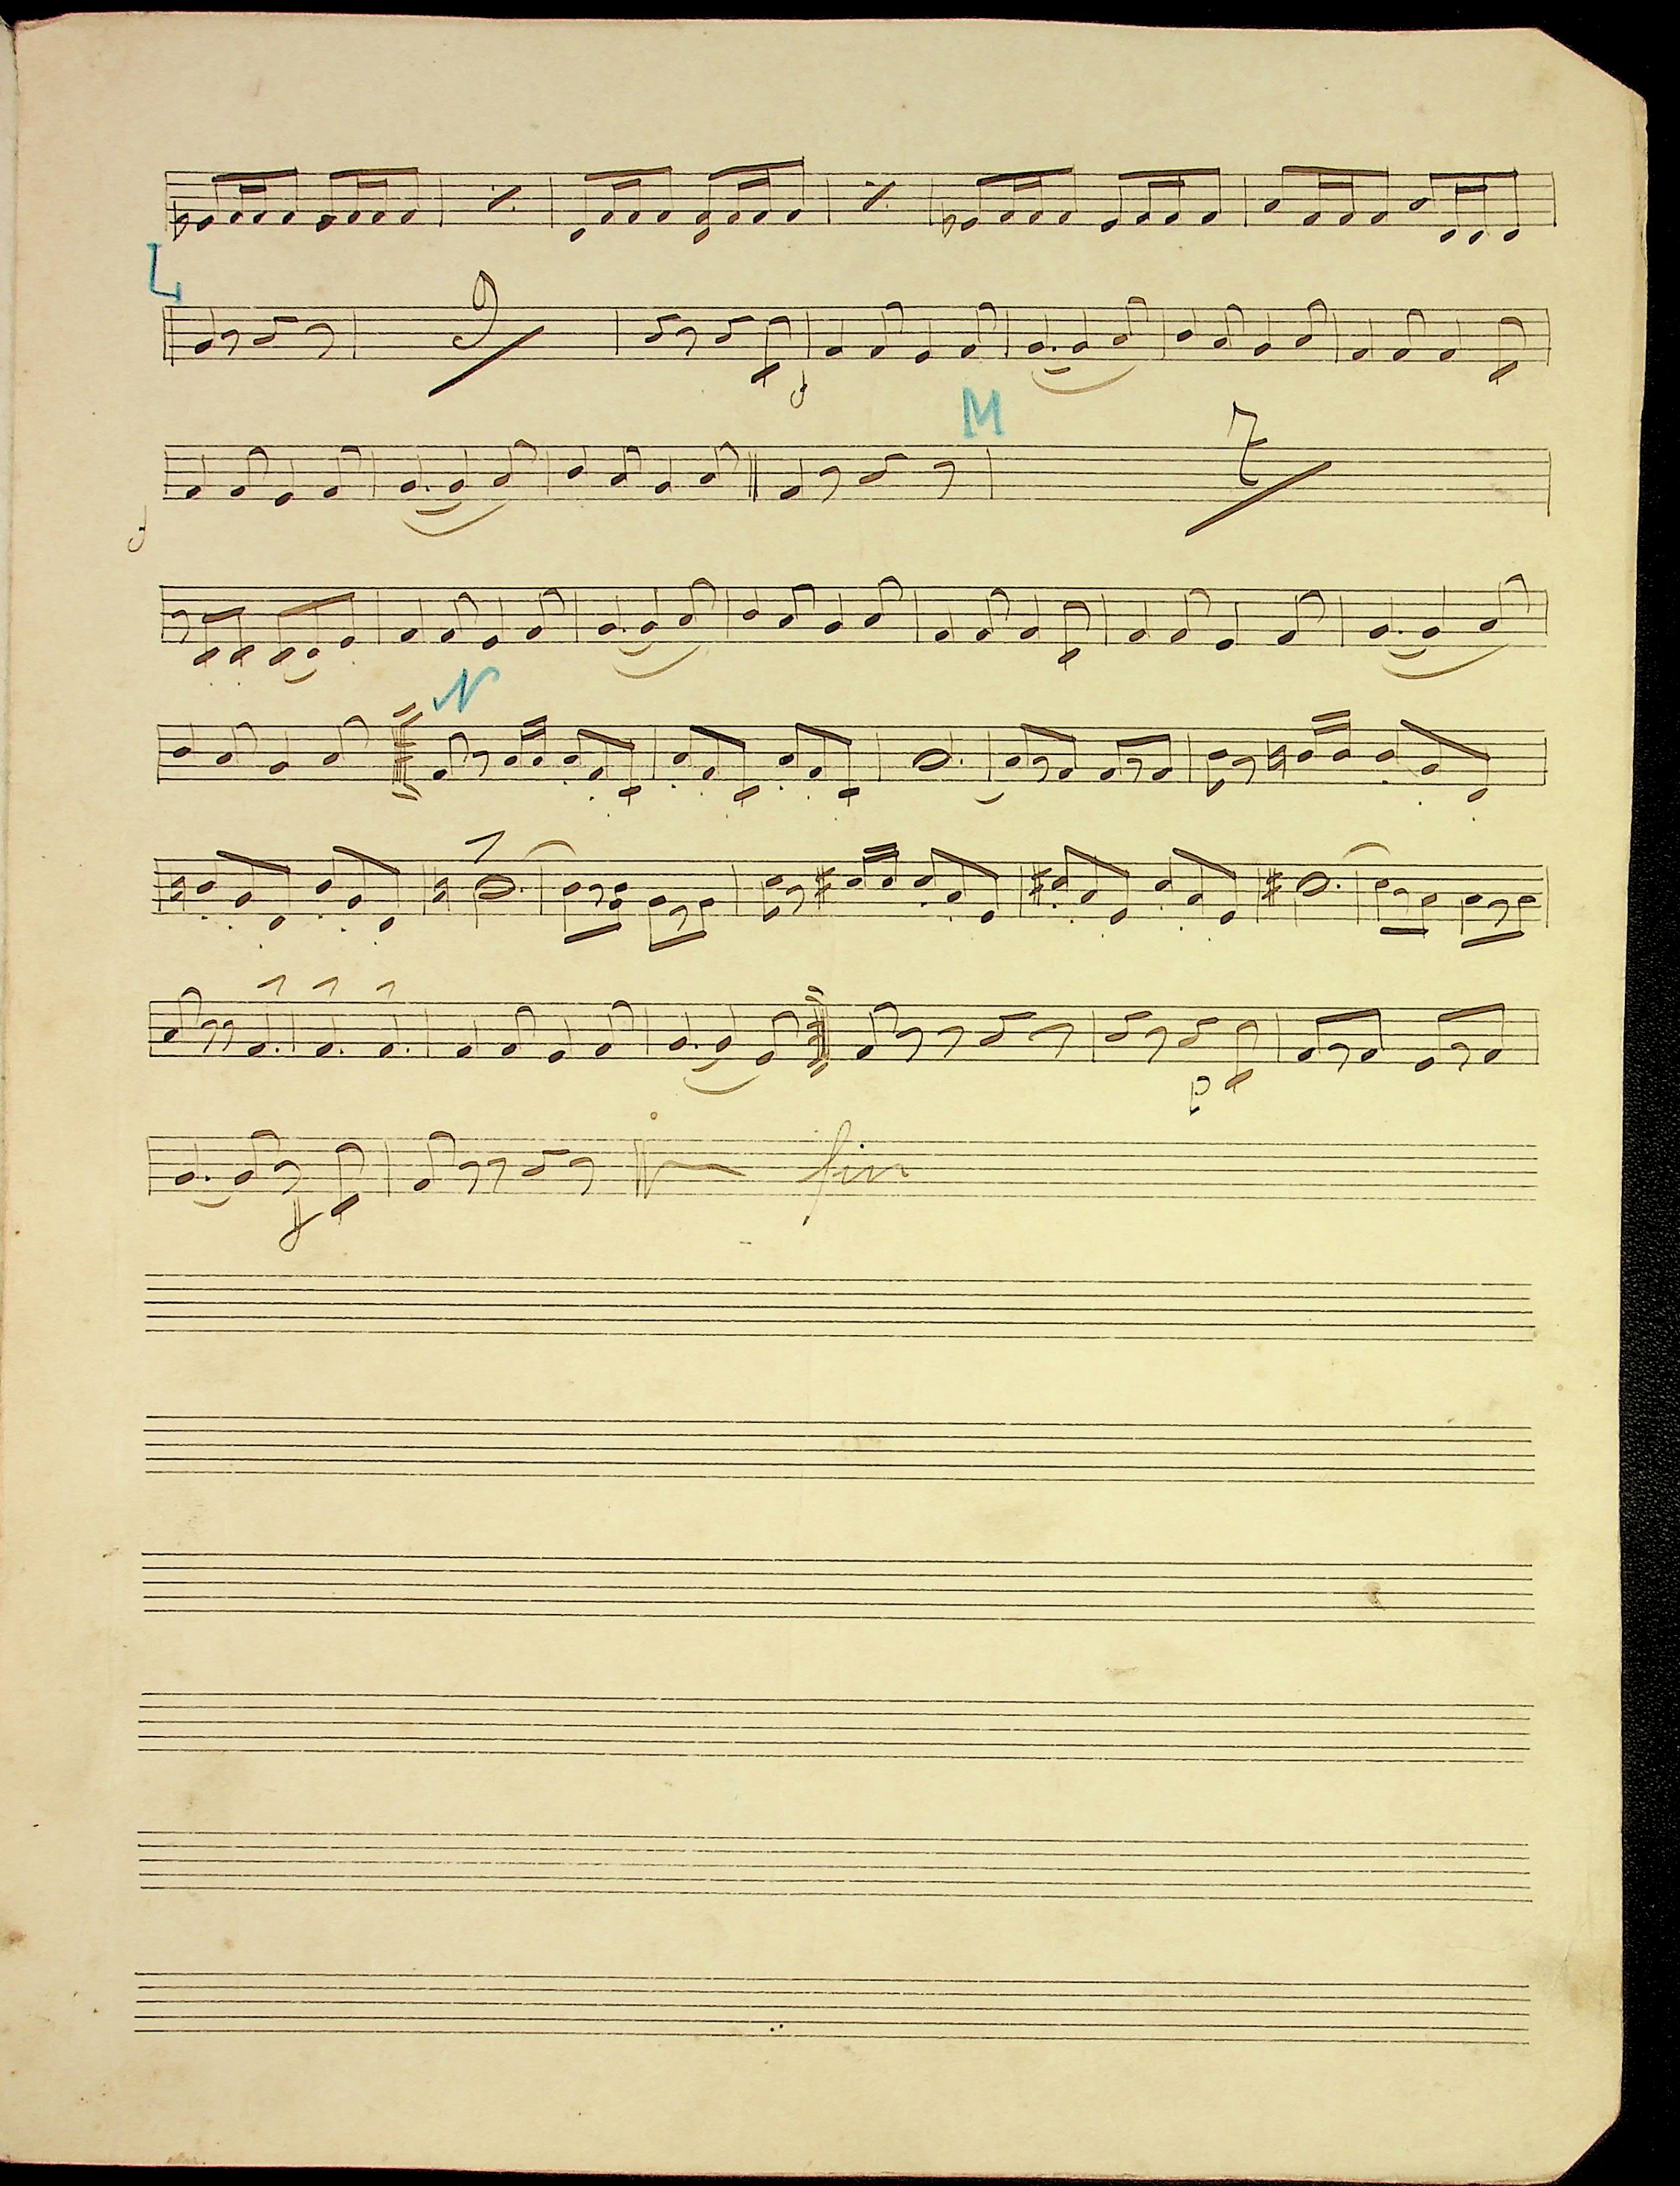 L
9
M
7
N
p
f fin